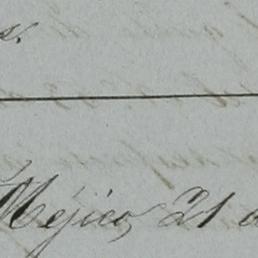 s.
Mejico, 21 d